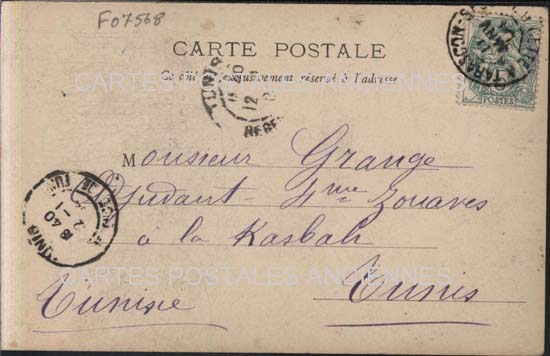 F07568
CARTE POSTALE
Ce côté est exclusivement réservé à l'adresse
POSTES
TUNIS
12
Monsieur Grange
Adjudant 4me Zouaves
à la Kasbah
Tunisie Tunis
TUNIS
8 40
2-1
CARTES POSTALES ANCIENNES